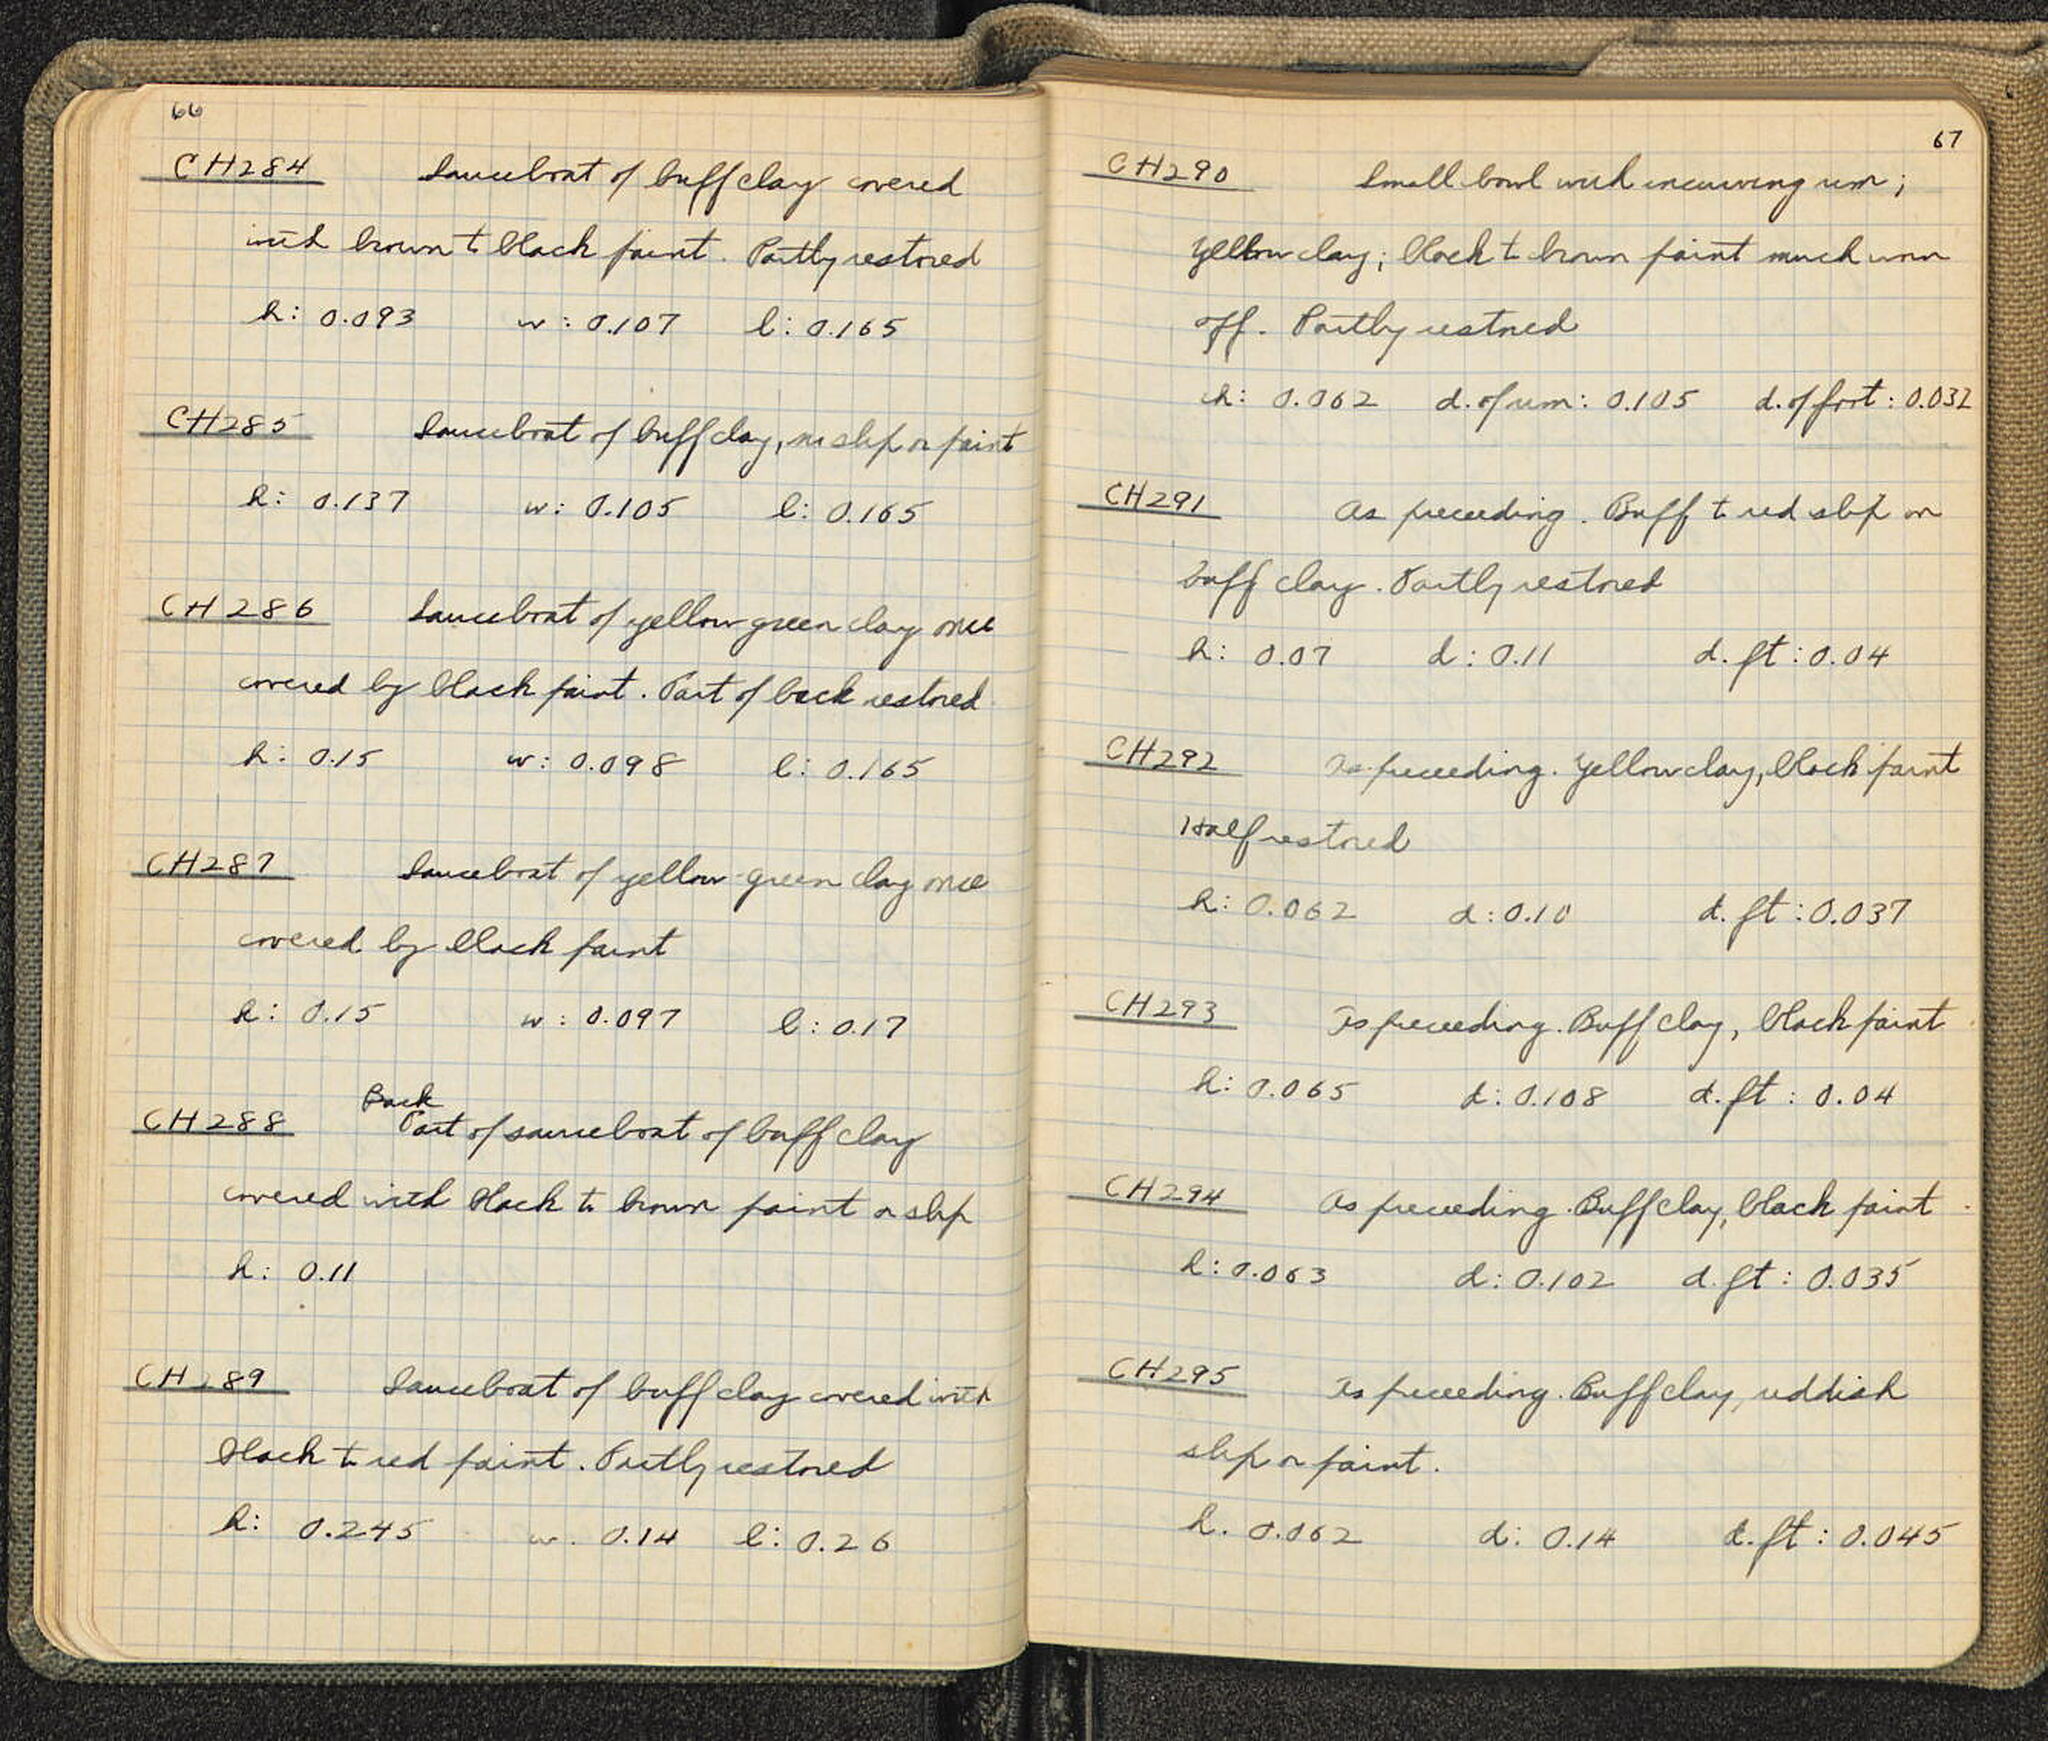 66
CH284 Sauceboat of buff clay covered
with brown to black paint. Partly restored
h: 0.093 w: 0.107 l: 0.165
CH285 Sauceboat of buff clay, no slip or paint
h: 0.137 w: 0.105 l: 0.165
CH286 Sauceboat of yellow green clay once
covered by black paint. Part of back restored
h: 0.15 w: 0.098 l: 0.165
CH287 Sauceboat of yellow-green clay once
covered by black paint
h: 0.15 w: 0.097 l: 0.17
Back
CH288 Part of sauceboat of buff clay
covered with black to brown paint or slip
h: 0.11
CH289 Sauceboat of buff clay covered with
black to red paint. Partly restored
h: 0.245 w. 0.14 l: 0.26
67
CH290 Small bowl with incurving rim;
yellow clay; black to brown paint much worn
off. Partly restored
h: 0.062 d. of rim: 0.105 d. of foot: 0.032
CH291 As preceeding. Buff to red slip on
buff clay. Partly restored
h: 0.07 d: 0.11 d. ft: 0.04
CH292 As preceeding. Yellow clay, black paint
Half restored
h: 0.062 d: 0.10 d. ft: 0.037
CH293 As preceeding. Buff clay, black paint
h: 0.065 d: 0.108 d. ft: 0.04
CH294 As preceeding. Buff clay, black paint
h: 0.063 d: 0.102 d. ft: 0.035
CH295 As preceeding. Buff clay, reddish
slip or paint.
h. 0.062 d: 0.14 d. ft: 0.045